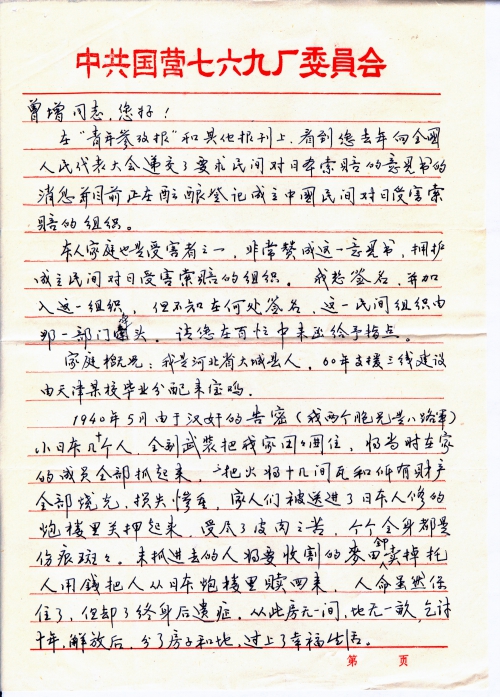 中共国营七六九厂委員会
曾增同志，您好！
在“青年参攷报”和其他报刊上，看到您去年向全國
人民代表大会递交了要求民间对日本索赔的意见书的
消息，并目前正在酝酿登记成立中國民间对日受害索
赔的组织。
本人家庭也是受害者之一，非常赞成这一意见书，拥护
成立民间对日受害索赔的组织。我想签名，并加
入这一组织，但不知在何处签名，这一民间组织由
那一部门牵头。请您在百忙中来函给予指点。
家庭概况：我是河北省大城县人，60年支援三线建设
由天津某校毕业分配来宝鸡。
1940年5月由于汉奸的告密（我两个胞兄是八路军）
小日本几十个人，全副武装把我家团团围住，将当时在家
的成员全部抓起来，一把火将十几间瓦和所有财产
全部烧光，损失惨重，家人们被送进了日本人修的
炮楼里关押起来，受尽了皮肉之苦，个个全身都是
伤痕斑々。未抓进去的人将要收割的麦田全部卖掉托
人用钱把人从日本炮楼里赎回来，人命虽然保
住了，但却了终身后遗症，从此房无一间，地无一亩，乞讨
十年，解放后，分了房子和地，过上了幸福生活。
第 页